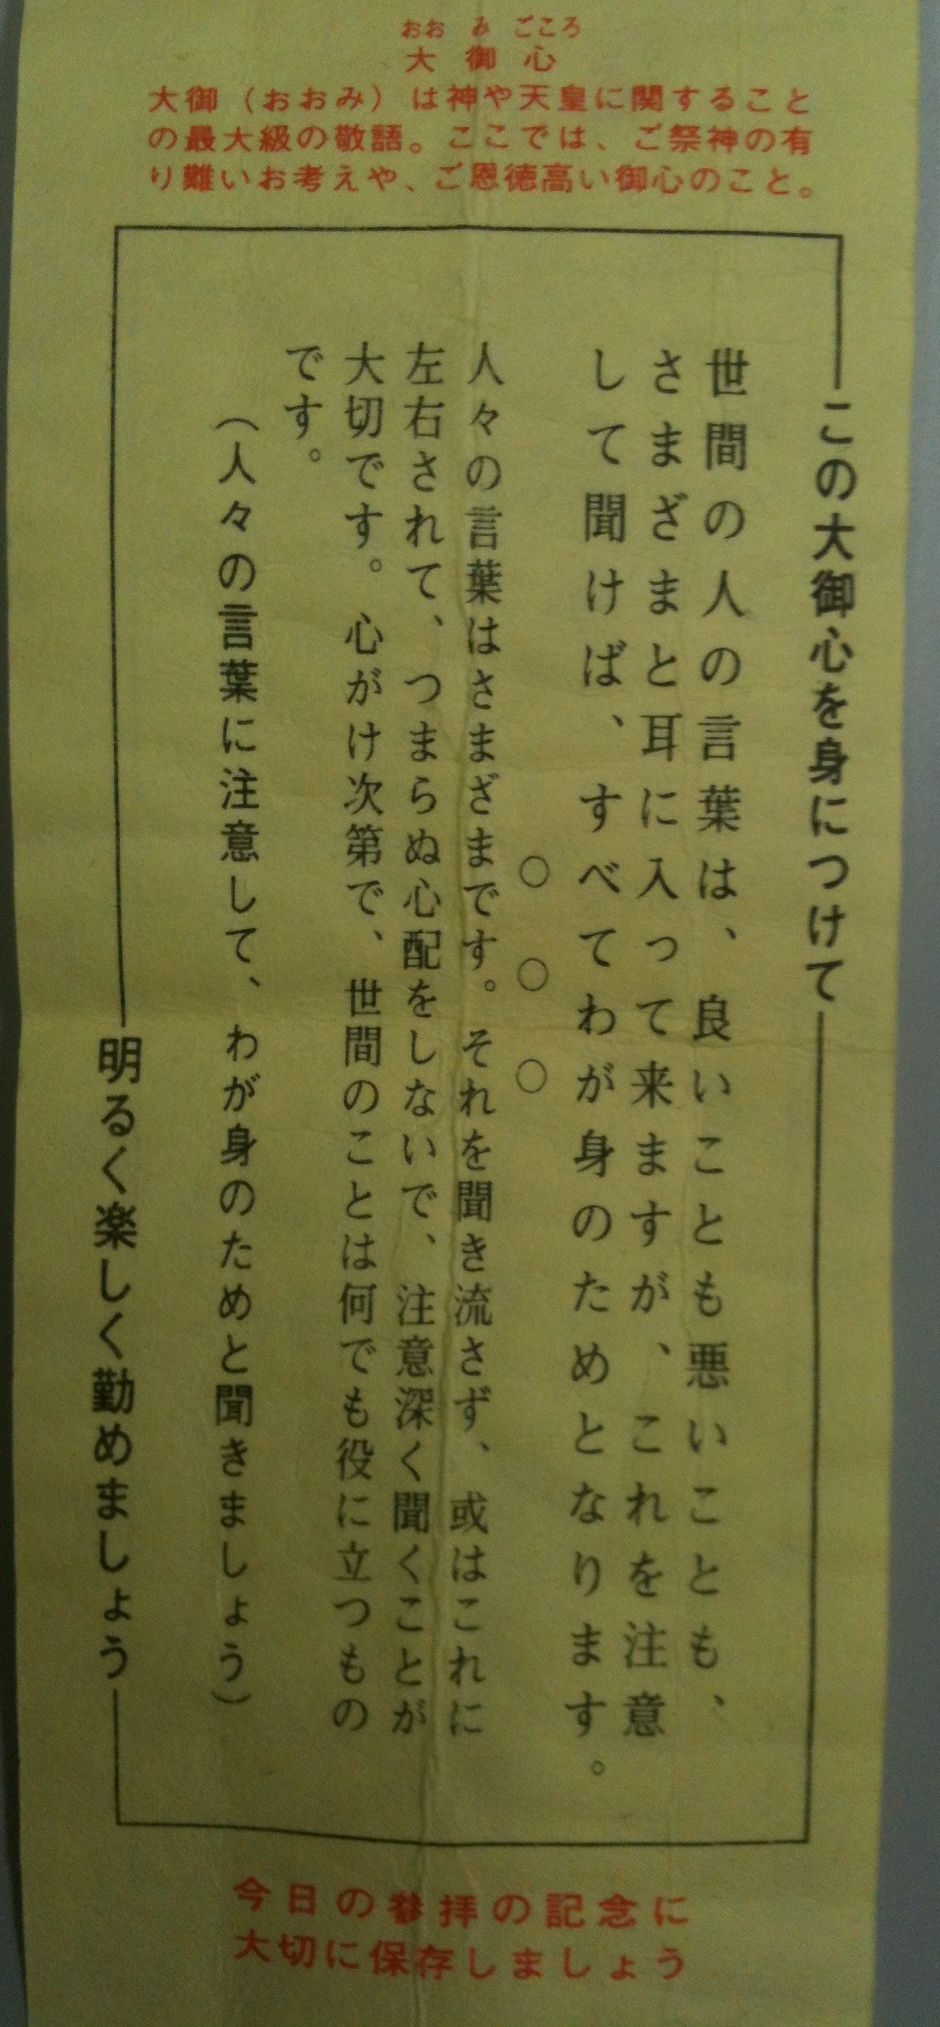 おおみごころ
大御心
大御（おおみ）は神や天皇に関すること
の最大級の敬語。ここでは、ご祭神の有
り難いお考えや、ご恩徳高い御心のこと。
この大御心を身につけて
世間の人の言葉は、良いことも悪いことも、
さまざまと耳に入って来ますが、これを注意
して聞けば、すべてわが身のためとなります。
○○○
人々の言葉はさまざまです。それを聞き流さず、或はこれに
左右されて、つまらぬ心配をしないで、注意深く聞くことが
大切です。心がけ次第で、世間のことは何でも役に立つもの
です。
（人々の言葉に注意して、わが身のためと聞きましょう）
明るく楽しく勤めましょう
今日の参拝の記念に
大切に保存しましょう